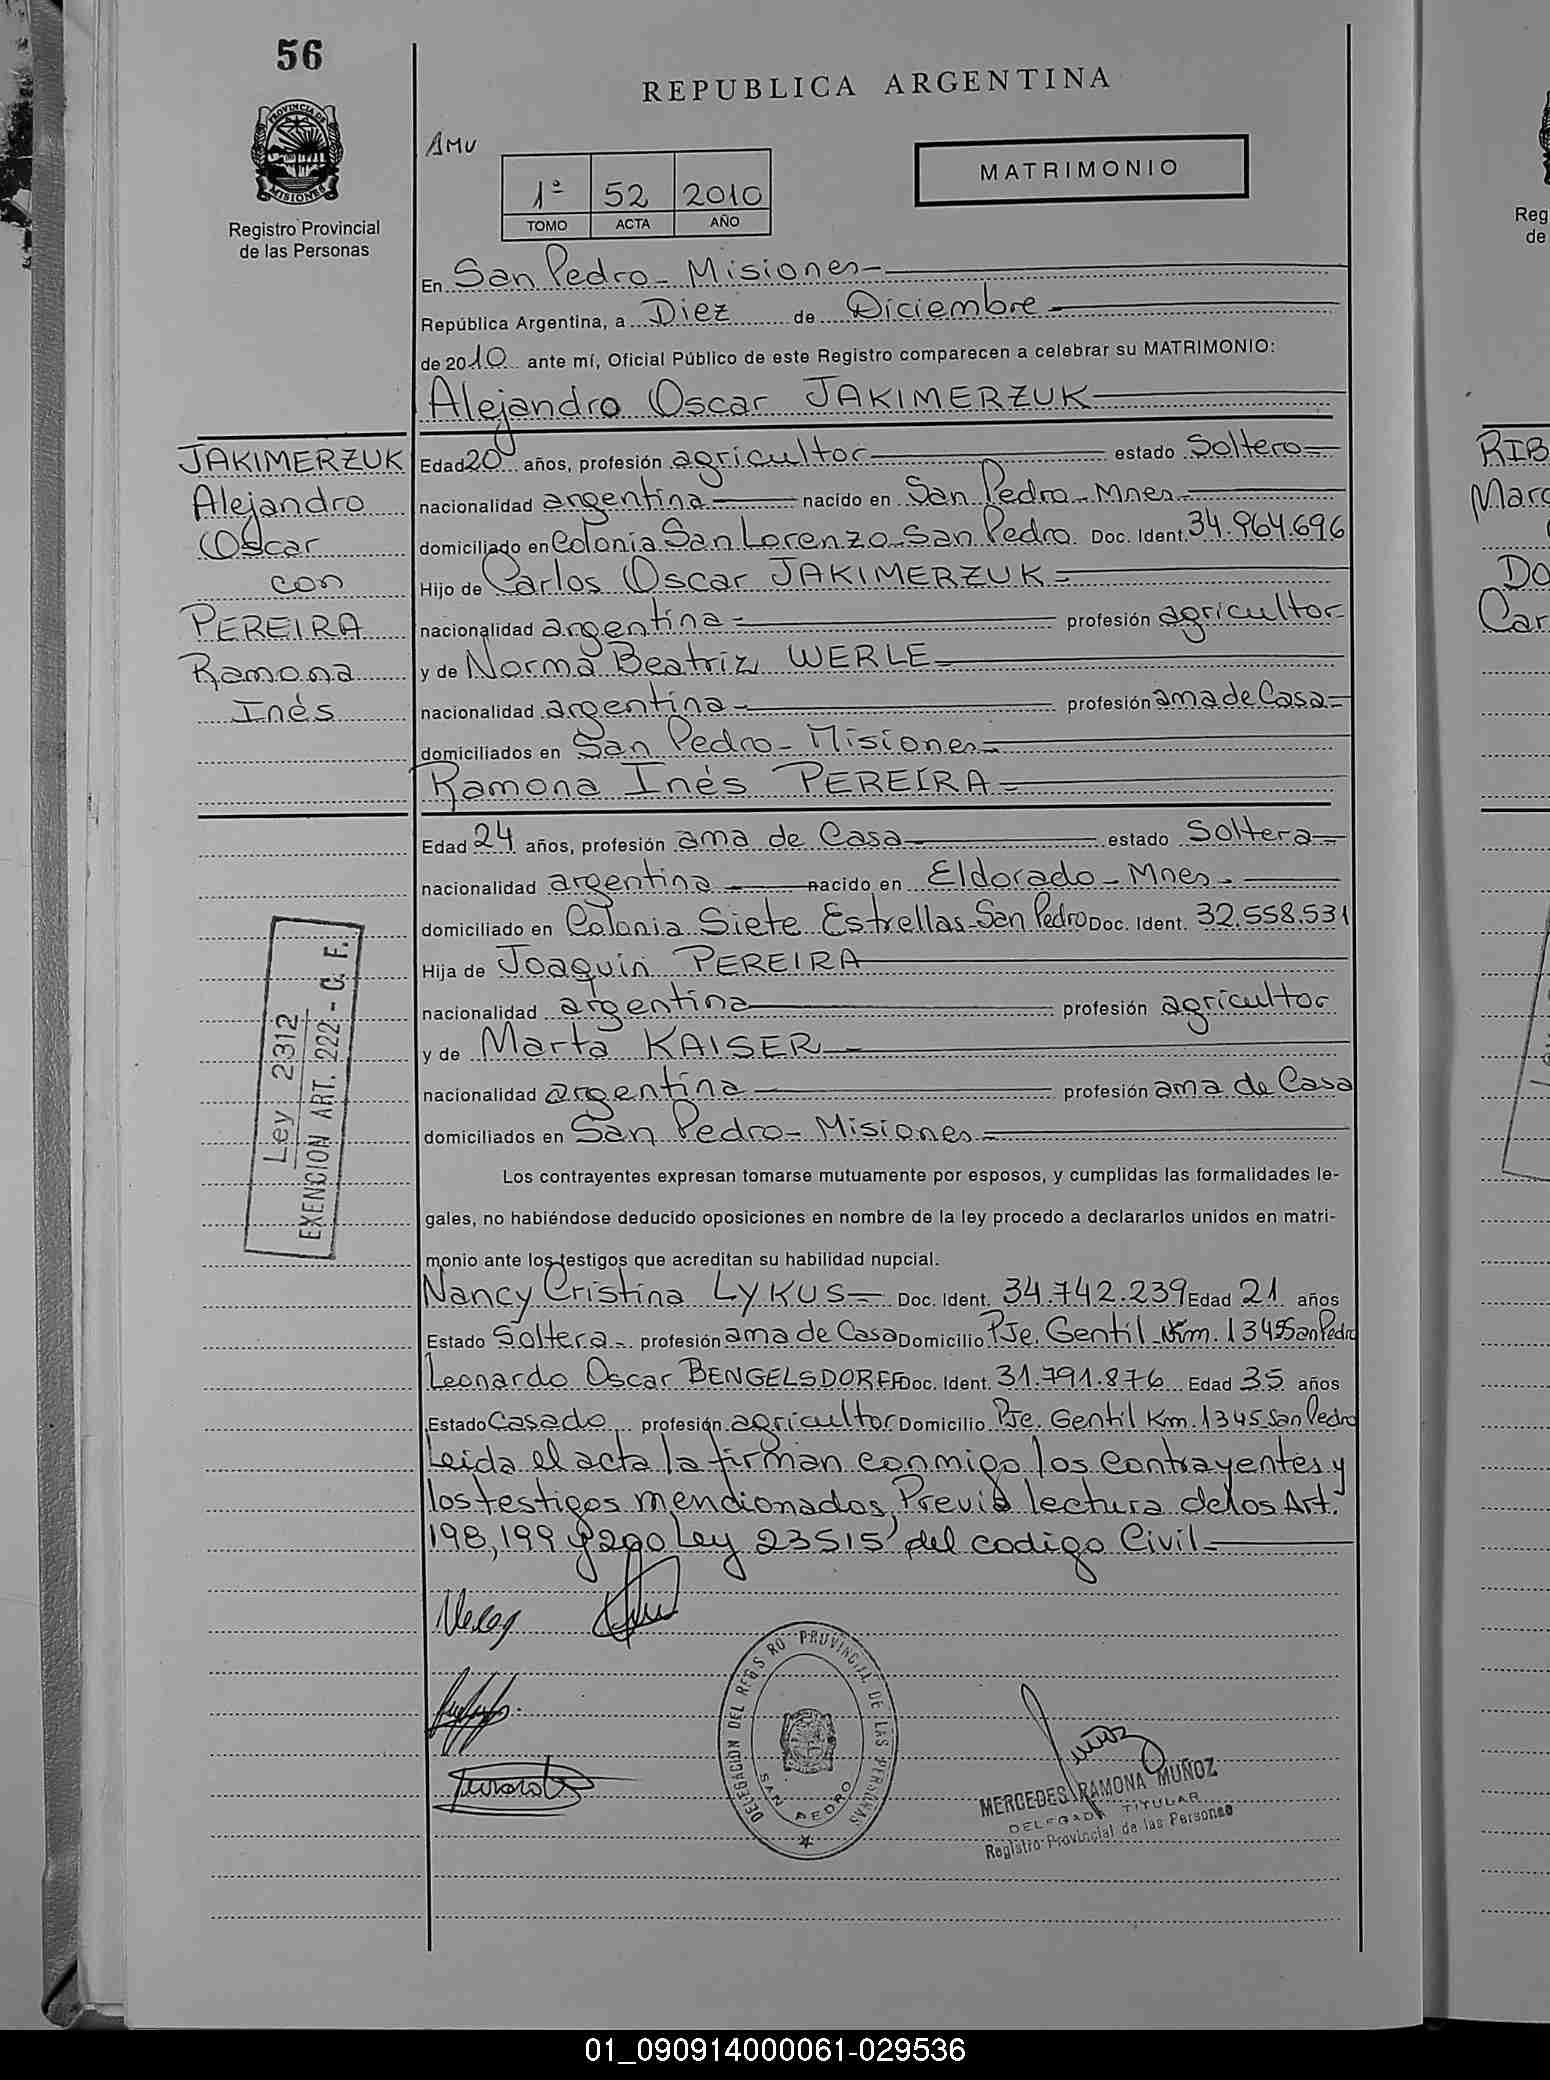 56
REPUBLICA ARGENTINA
PROVINCIA DE
MISIONES
Registro Provincial
de las Personas
AMU
MATRIMONIO
1ª 52 2010
TOMO ACTA AÑO
En San Pedro - Misiones
República Argentina, a Diez de Diciembre
de 2010 ante mí, Oficial Público de este Registro comparecen a celebrar su MATRIMONIO:
Alejandro Oscar JAKIMERZUK
JAKIMERZUK
Alejandro
Oscar
con
PEREIRA
Ramona
Inés
Edad 20 años, profesión agricultor estado Soltero
nacionalidad argentina nacido en San Pedro - Mnes
domiciliado en Colonia San Lorenzo - San Pedro Doc. Ident. 34.964.696
Hijo de Carlos Oscar JAKIMERZUK
nacionalidad argentina profesión agricultor
y de Norma Beatriz WERLE
nacionalidad argentina profesión ama de Casa
domiciliados en San Pedro - Misiones
Ramona Inés PEREIRA
Edad 24 años, profesión ama de Casa estado Soltera
nacionalidad argentina nacido en Eldorado - Mnes
domiciliado en Colonia Siete Estrellas - San Pedro Doc. Ident. 32.558.531
Hija de Joaquin PEREIRA
nacionalidad argentina profesión agricultor
y de Marta KAISER
nacionalidad argentina profesión ama de Casa
domiciliados en San Pedro - Misiones
Ley 2312
EXENCION ART. 222 - C. F.
Los contrayentes expresan tomarse mutuamente por esposos, y cumplidas las formalidades le-
gales, no habiéndose deducido oposiciones en nombre de la ley procedo a declararlos unidos en matri-
monio ante los testigos que acreditan su habilidad nupcial.
Nancy Cristina LYKUS Doc. Ident. 34.742.239 Edad 21 años
Estado Soltera profesión ama de Casa Domicilio Pje. Gentil Km. 1345 San Pedro
Leonardo Oscar BENGELSDORFF Doc. Ident. 31.791.876 Edad 35 años
Estado Casado profesión agricultor Domicilio Pje. Gentil Km. 1345 San Pedro
Leida el acta la firman conmigo los Contrayentes y
los testigos mencionados, Previa lectura de los Art.
198, 199 y 200 Ley 23515 del codigo Civil
DELEGACIÓN DEL REGISTRO PROVINCIAL DE LAS PERSONAS
SAN PEDRO
MERCEDES RAMONA MUÑOZ
DELEGADA TITULAR
Registro Provincial de las Personas
Reg
de
RIB
Marc
Do
Car
01_090914000061-029536